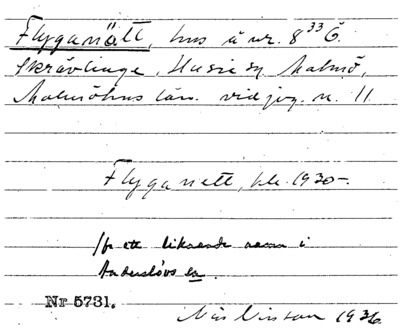 Flyganätt, hus å nr. 8³³ Ö.
Skrävlinge, Husie sn, Malmö,
Malmöhus län. vid jvg. n. 11
Flyganett, bl. 1930-.
Jfr ett liknande namn i
Anderslövs sn.
Nr 5731.
Nils Nilsson 1936.